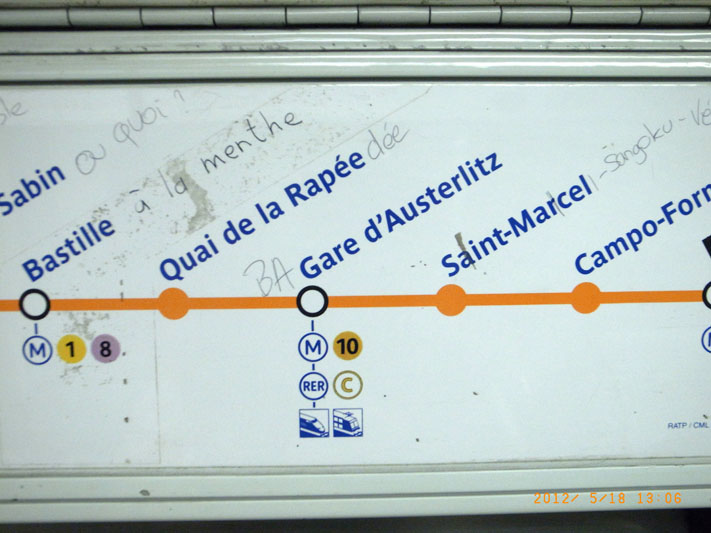 Sabin ou quoi ?
Bastille à la menthe
Quai de la Rapée dée
BA Gare d'Austerlitz
Saint-Marcel
-Songoku-Vé
Campo-Form
M 1 8
M 10
RER C
RATP / CML
2012/ 5/18 13:06